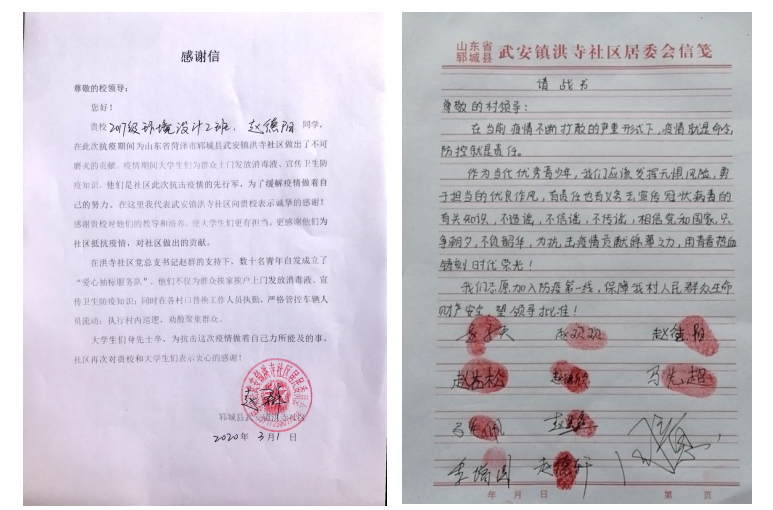 感谢信
尊敬的校领导:
您好!
贵校2017级环境设计2班,赵德阳同学,
在此次抗疫期间为山东省菏泽市郓城县武安镇洪寺社区做出了不可
磨灭的贡献。疫情期间大学生们为群众上门发放消毒液、宣传卫生防
疫知识。他们是社区此次抗击疫情的先行军,为了缓解疫情做着自
己的努力。在这里我代表武安镇洪寺社区向贵校表示诚挚的感谢!
感谢贵校对他们的教导和培养,使大学生们更有担当,更感谢他们为
社区抵抗疫情,对社区做出的贡献。
在洪寺社区党总支书记赵群的支持下,数十名青年自发成立了
“爱心袖标服务队”。他们不仅为群众挨家挨户上门发放消毒液、宣
传卫生防疫知识;同时在各村口替换工作人员执勤,严格管控车辆人
员流动;执行村内巡逻,劝散聚集群众。
大学生们身先士卒,为抗击这次疫情做着自己力所能及的事。
社区再次对贵校和大学生们表示衷心的感谢!
郓城县武安镇洪寺社区
2020年3月1日
山东省
郓城县 武安镇洪寺社区居委会信笺
请战书
尊敬的村领导:
在当前疫情不断扩散的严重形式下,疫情就是命令,
防控就是责任。
作为当代优秀青少年,我们应该发挥无惧风险,勇
于担当的优良作风,有责任也有义务去宣传冠状病毒的
有关知识,不造谣,不信谣,不传谣,相信党和国家。只
争朝夕,不负韶华,为抗击疫情贡献绵薄之力,用青春热血
铸刻时代荣光!
我们志愿加入防疫第一线,保障我村人民群众生命
财产安全,望领导批准!
赵欢欢 赵德阳
马先超
赵德轩
年 月 日 第 页